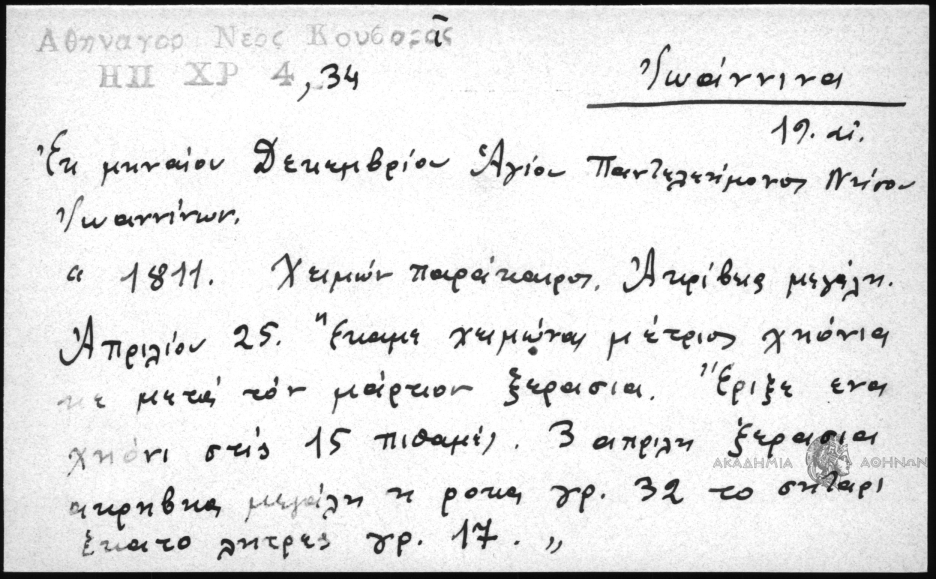 Αθηναγορ Νεος Κουβαρᾶς
ΗΠ ΧΡ 4, 34
Ἰωάννινα
19. αἰ.
Ἐκ μηναίου Δεκεμβρίου Ἁγίου Παντελεήμονος Νήσου
Ἰωαννίνων.
" 1811. Χειμών παράκαιρος. Ἀκρίβεια μεγάλη.
Ἀπριλίου 25. Ἔκαμε χειμῶνας μέτριος χηόνια
κε μετά τόν μάρτιον ξερασια. Ἔριξε ενα
χηόνι στές 15 πιθαμές. 3 απριλη ξερασια
ακρηβηα μεγάλη η ροκα γρ. 32 το σηταρι
ἑκατο λητρες γρ. 17. "
ΑΚΑΔΗΜΙΑ ΑΘΗΝΩΝ